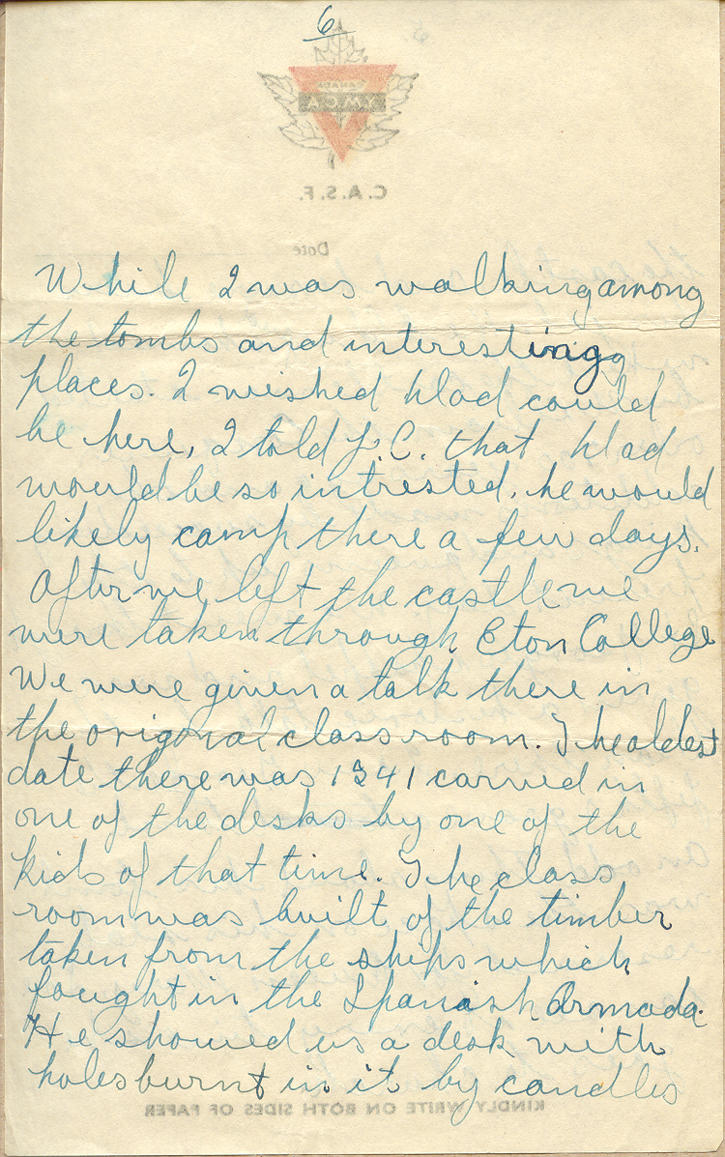 6
CANADA
Y.M.C.A
C.A.S.F.
Date
While I was walking among
the tombs and interesting
places. I wished Dad could
be here, I told J.C. that Dad
would be so intrested, he would
likely camp there a few days.
After we left the castle we
were taken through Eton College
We were given a talk there in
the origonal class room. The oldest
date there was 1341 carried in
one of the desks by one of the
kids of that time. The class
room was built of the timber
taken from the ships which
fought in the Spanish Armada.
He showed us a desk with
holes burnt in it by candles
KINDLY WRITE ON BOTH SIDES OF PAPER